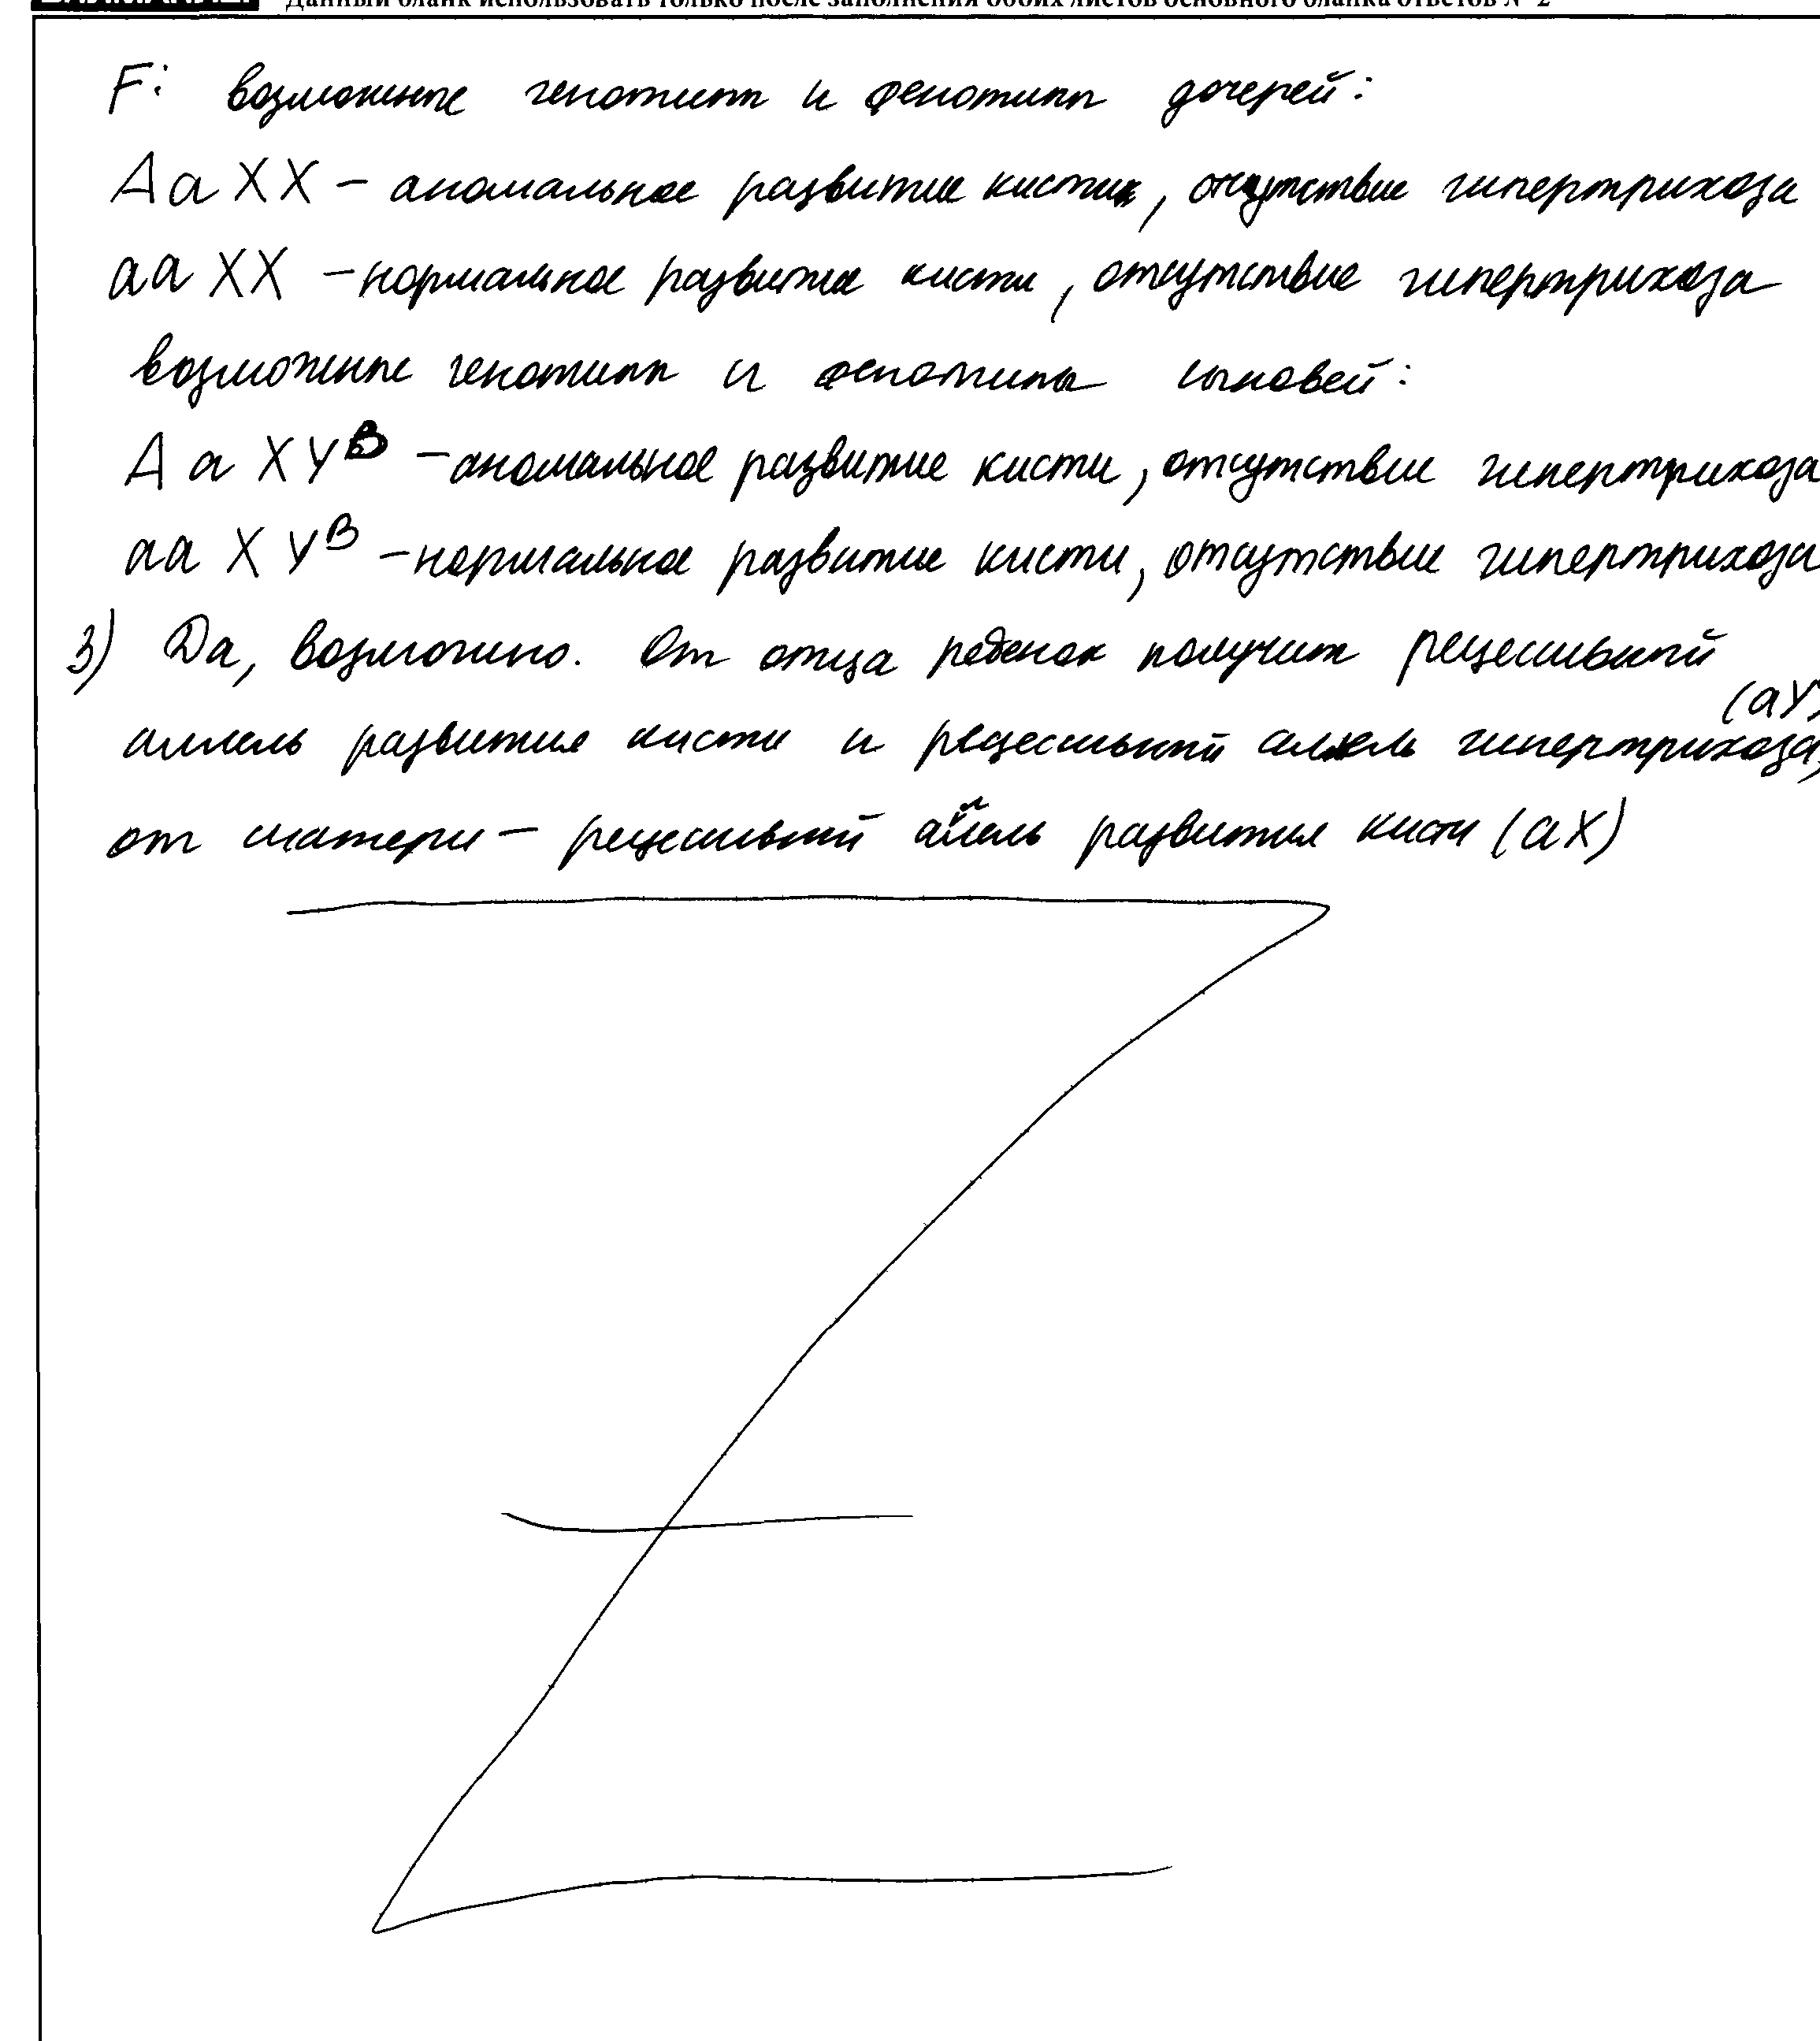 Данный бланк использовать только после заполнения обоих листов основного бланка ответов № 2
F: возможные генотипы и фенотипы дочерей:
AaXX – аномальное развитие кисти, отсутствие гипертрихоза
aaXX – нормальное развитие кисти, отсутствие гипертрихоза
возможные генотипы и фенотипы сыновей:
AaXYᴮ – аномальное развитие кисти, отсутствие гипертрихоза
aaXYᴮ – нормальное развитие кисти, отсутствие гипертрихоза
3) Да, возможно. От отца ребенок получит рецессивный
аллель развития кисти и рецессивный аллель гипертрихоза (aY),
от матери – рецессивный аллель развития кисти (aX)
Z